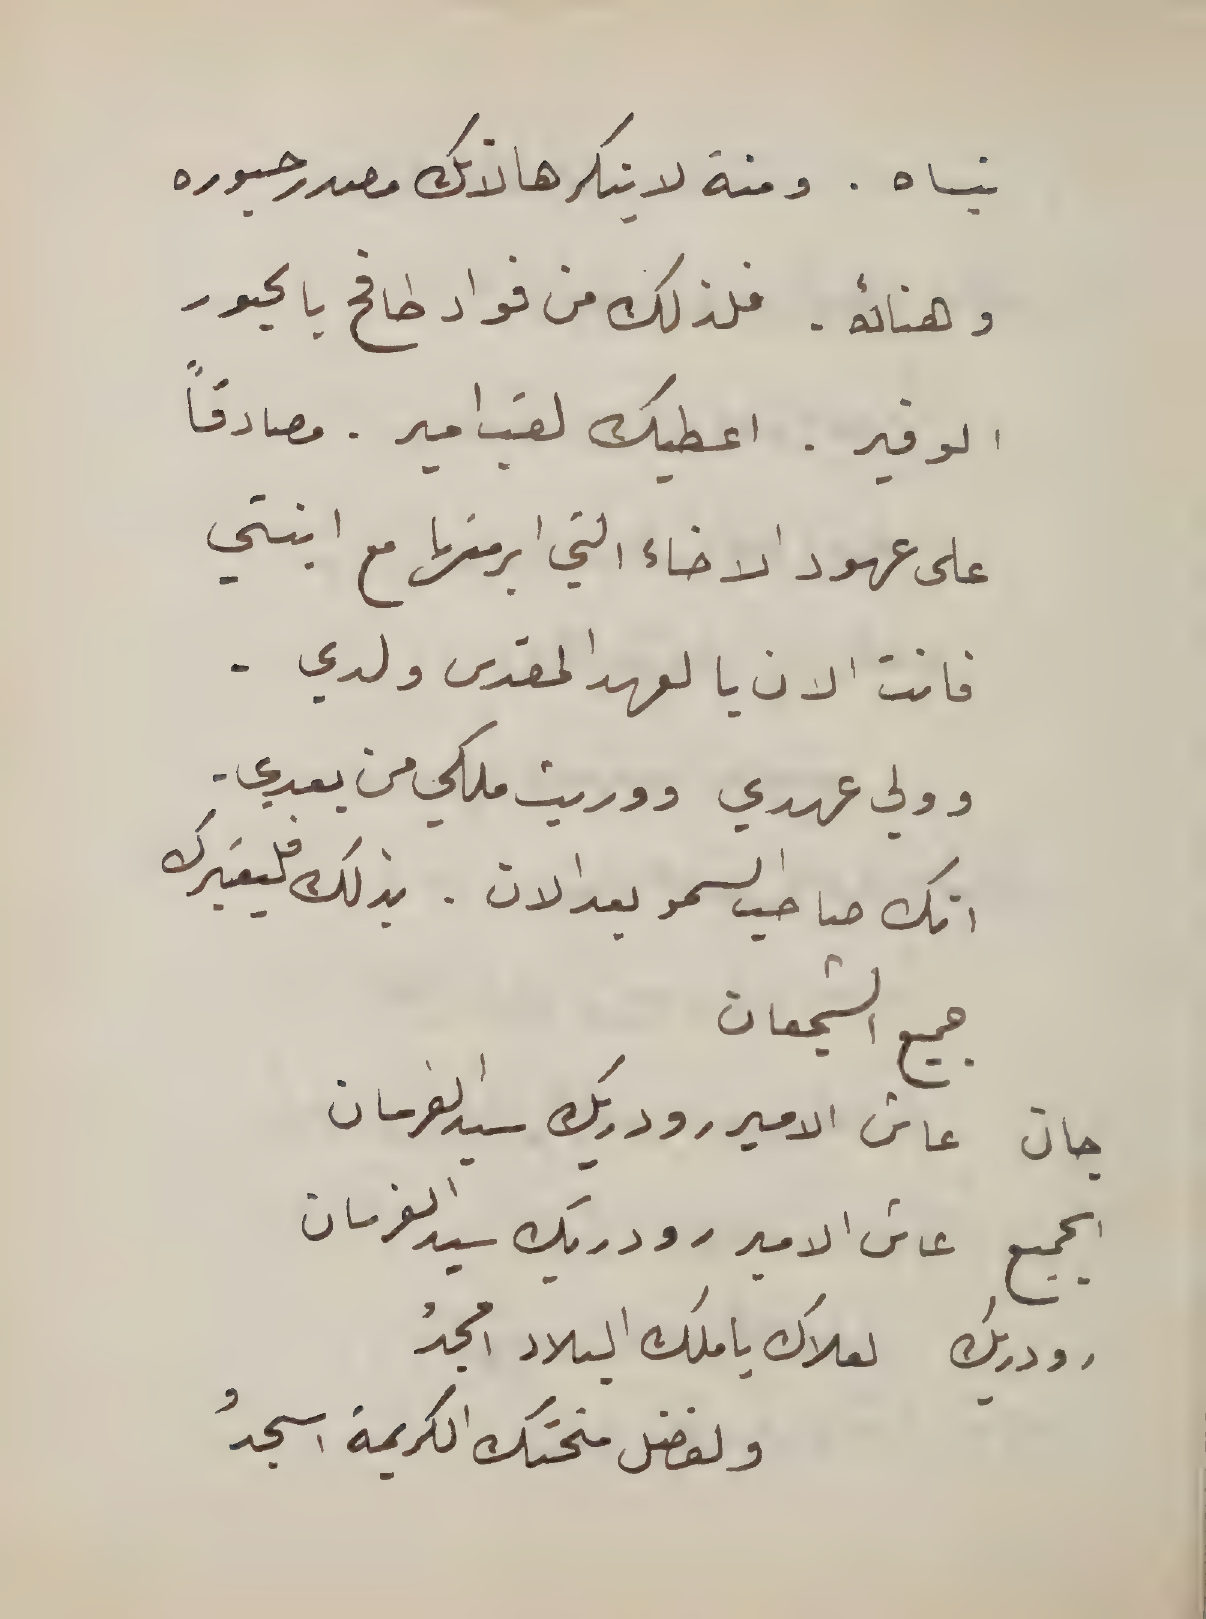 ينساه . ومنة لا ينكرها لانك مصدر حبوره
وهنائه . فلذلك من فواد طافح بالحبور
الوفير . اعطيك لقب امير . مصادقاً
على عهود الاخاء التي ابرمتها مع ابنتي
فانت الان بالعهد المقدس ولدي .
وولي عهدي ووريث ملكي من بعدي .
انك صاحب السمو بعد الان . بذلك فليعتبرك
جميع الشجعان
جان عاش الامير رودريك سيد الفرسان
الجميع عاش الامير رودريك سيد الفرسان
رودريك لعلاك يا ملك البلاد امجدُ
ولفضل منحتك الكريمة اسجدُ